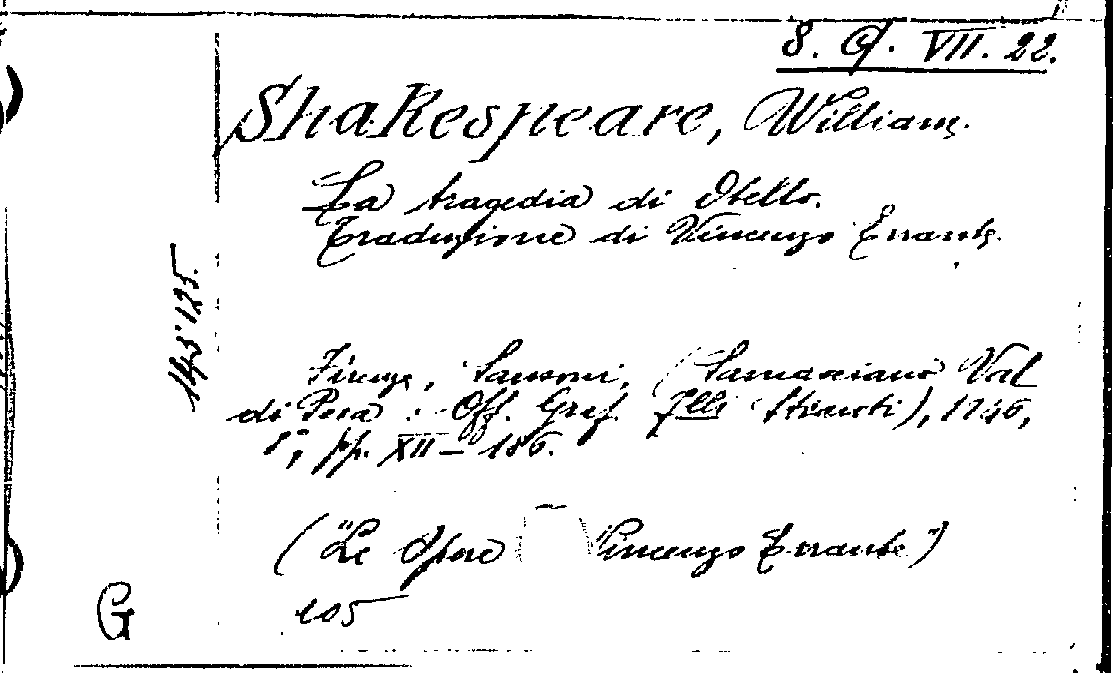 8. G. VII. 22.
Shakespeare, William.
La tragedia di Otello.
Traduzione di Vincenzo Errante.
145125.
Firenze, Sansoni, (Samasciano Val
di Pesa : Off. Graf. Flli Stianti), 1946,
8°, pp. XII - 186.
("Le Opere Vincenzo Errante")
105
G